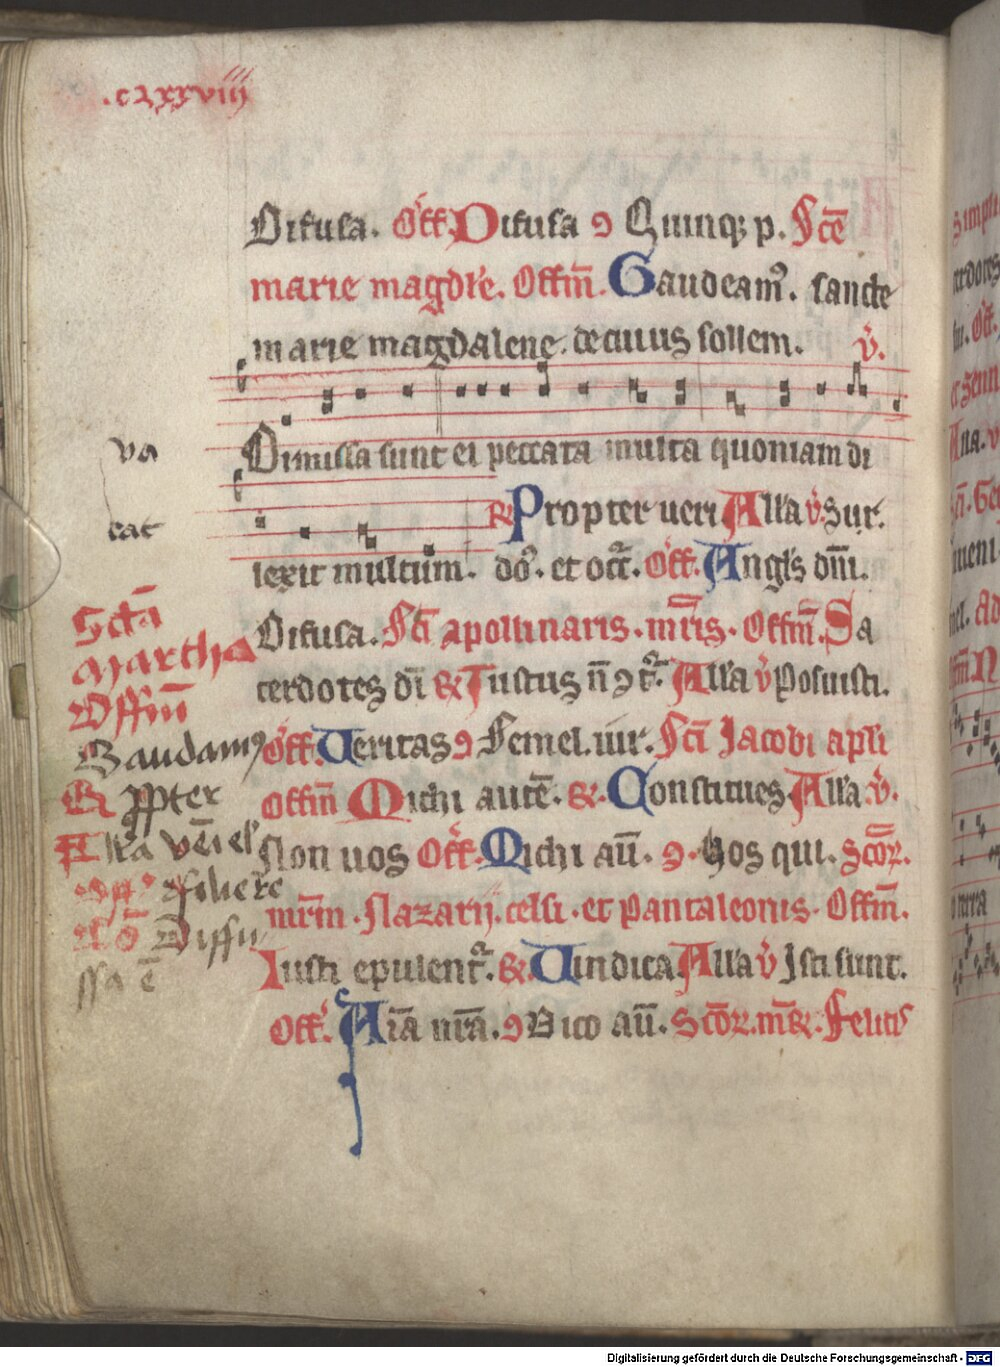 .clxxviii
Difusa. Off. Difusa 9 Quinqꝫ p. Sce͞
marie magdle. Offm̅. Gaudeamꝰ. sancte
marie magdalene. de cuius sollem. v̇.
Dimissa sunt ei peccata multa quoniam di
va
cat
℞ Propter veri Alla v̇. Sur.
lexit multum. do᷒. et oct̅. Off. Angl's dn̅i.
Difusa. Sc̅i apollinaris. mr̅is. Offm̅. Sa
cerdotes di̅ ℞ Iustus n̅ 9 t᷒. Alla v̇ Posuisti.
Off. Veritas 9 Semel. iur. Sc̅i Jacobi apli
Offm̅ Michi aute̅. ℞. Constitues Alla. v̇.
Non vos Off. Michi au̅. 9. Vos qui. Sc̅oꝝ.
mr̅m. Nazarij. celsi. et Pantaleonis. Offm̅.
Iusti epulent᷒. ℞. Vindica Alla v̇ Isti sunt.
Off. Aīa nr̅a. 9 Dico au̅. Sc̅oꝝ. m̅ꝝ. Felicis
Scta̅
Martha
Offm̅
Gaudamꝰ
℞ ꝓpter
Alla
filie re
Co̅ Diffu
ssa e̅
Digitalisierung gefördert durch die Deutsche Forschungsgemeinschaft - DFG